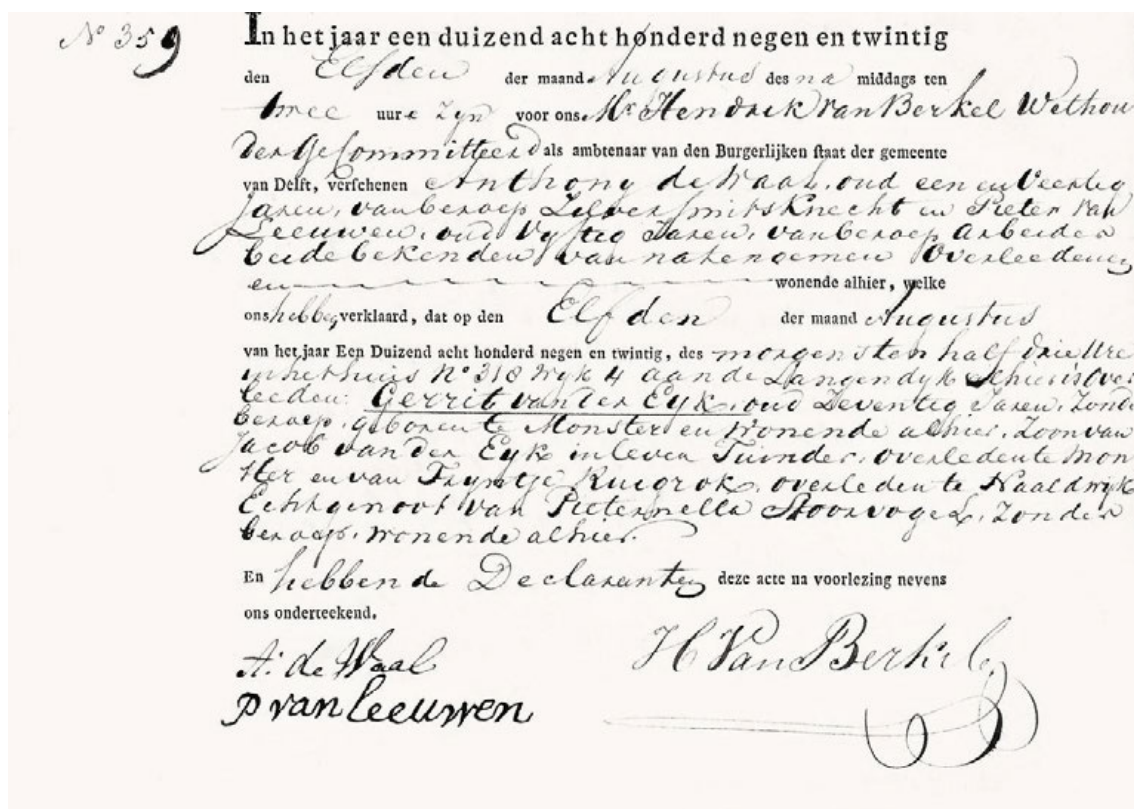 N° 359
In het jaar een duizend acht honderd negen en twintig
den Elfden der maand Augustus des na middags ten
twee uure zyn voor ons Mr Hendrik van Berkel Wethou
der Gecommitteerd als ambtenaar van den Burgerlijken staat der gemeente
van Delft, verschenen Anthony de Waal, oud een en Veertig
Jaren, van beroep Zilversmitsknecht en Pieter van
Leeuwen, oud Vyftig Jaren, van beroep arbeider
beide bekenden van natenoemen Overledenen
en wonende alhier, welke
ons hebben verklaard, dat op den Elfden der maand Augustus
van het jaar Een Duizend acht honderd negen en twintig, des morgens ten half drie Ure
in het huis N° 318 Wyk 4 aan de Langendyk alhier is over
leeden: Gerrit van der Eyk, oud Zeventig Jaren, Zonder
beroep, geboren te Monster en wonende alhier, Zoon van
Jacob van der Eyk in leven Tuinder, overleden te Mon
ster en van Tryntje Ruigrok, overleden te Naaldwyk
Echtgenoot van Pieternella Stoorvogel, Zonder
beroep, wonende alhier.
En hebben de Declaranten deze acte na voorlezing nevens
ons onderteekend.
A: de Waal
H Van Berkel
P van Leeuwen